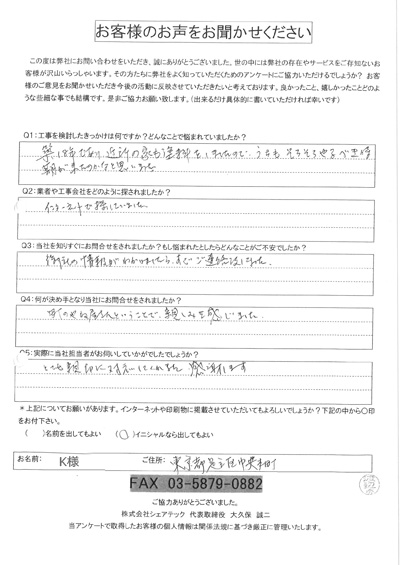 お客様のお声をお聞かせください
この度は弊社にお問い合わせをいただき、誠にありがとうございました。世の中には弊社の存在やサービスをご存知ないお
客様が沢山いらっしゃいます。その方たちに弊社をよく知っていただくためのアンケートにご協力いただけるでしょうか? お客
様のご意見をお聞かせいただき今後の活動に反映させていただきたいと考えております。良かったこと、嬉しかったことどのよ
うな些細な事でも結構です。是非ご協力お願い致します。(出来るだけ具体的に書いていただければ幸いです)
Q1:工事を検討したきっかけは何ですか?どんなことで悩まれていましたか?
近所の家も塗料をしましたので、うちもそろそろやるべき時
期が来たのかなと思いました
Q2:業者や工事会社をどのように探されましたか?
インターネットで探していました
Q3:当社を知りすぐにお問合せをされましたか?もし悩まれたとしたらどんなことがご不安でしたか?
御社の情報がわかりましたら、すぐご連絡しました
Q4:何が決め手となり当社にお問合せをされましたか?
町のやね屋さんということで、親しみを感じました
Q5:実際に当社担当者がお伺いしていかがでしたでしょうか?
とても親切に対応してくれました 感謝します
*上記についてお願いがあります。インターネットや印刷物に掲載させていただいてもよろしいでしょうか?下記の中から〇印
をお付下さい。
( )名前を出してもよい (〇)イニシャルなら出してもよい
お名前: K様 ご住所: 東京都足立区中央本町
FAX 03-5879-0882
ご協力ありがとうございました。
株式会社シェアテック 代表取締役 大久保 誠二
当アンケートで取得したお客様の個人情報は関係法規に基づき厳正に管理いたします。